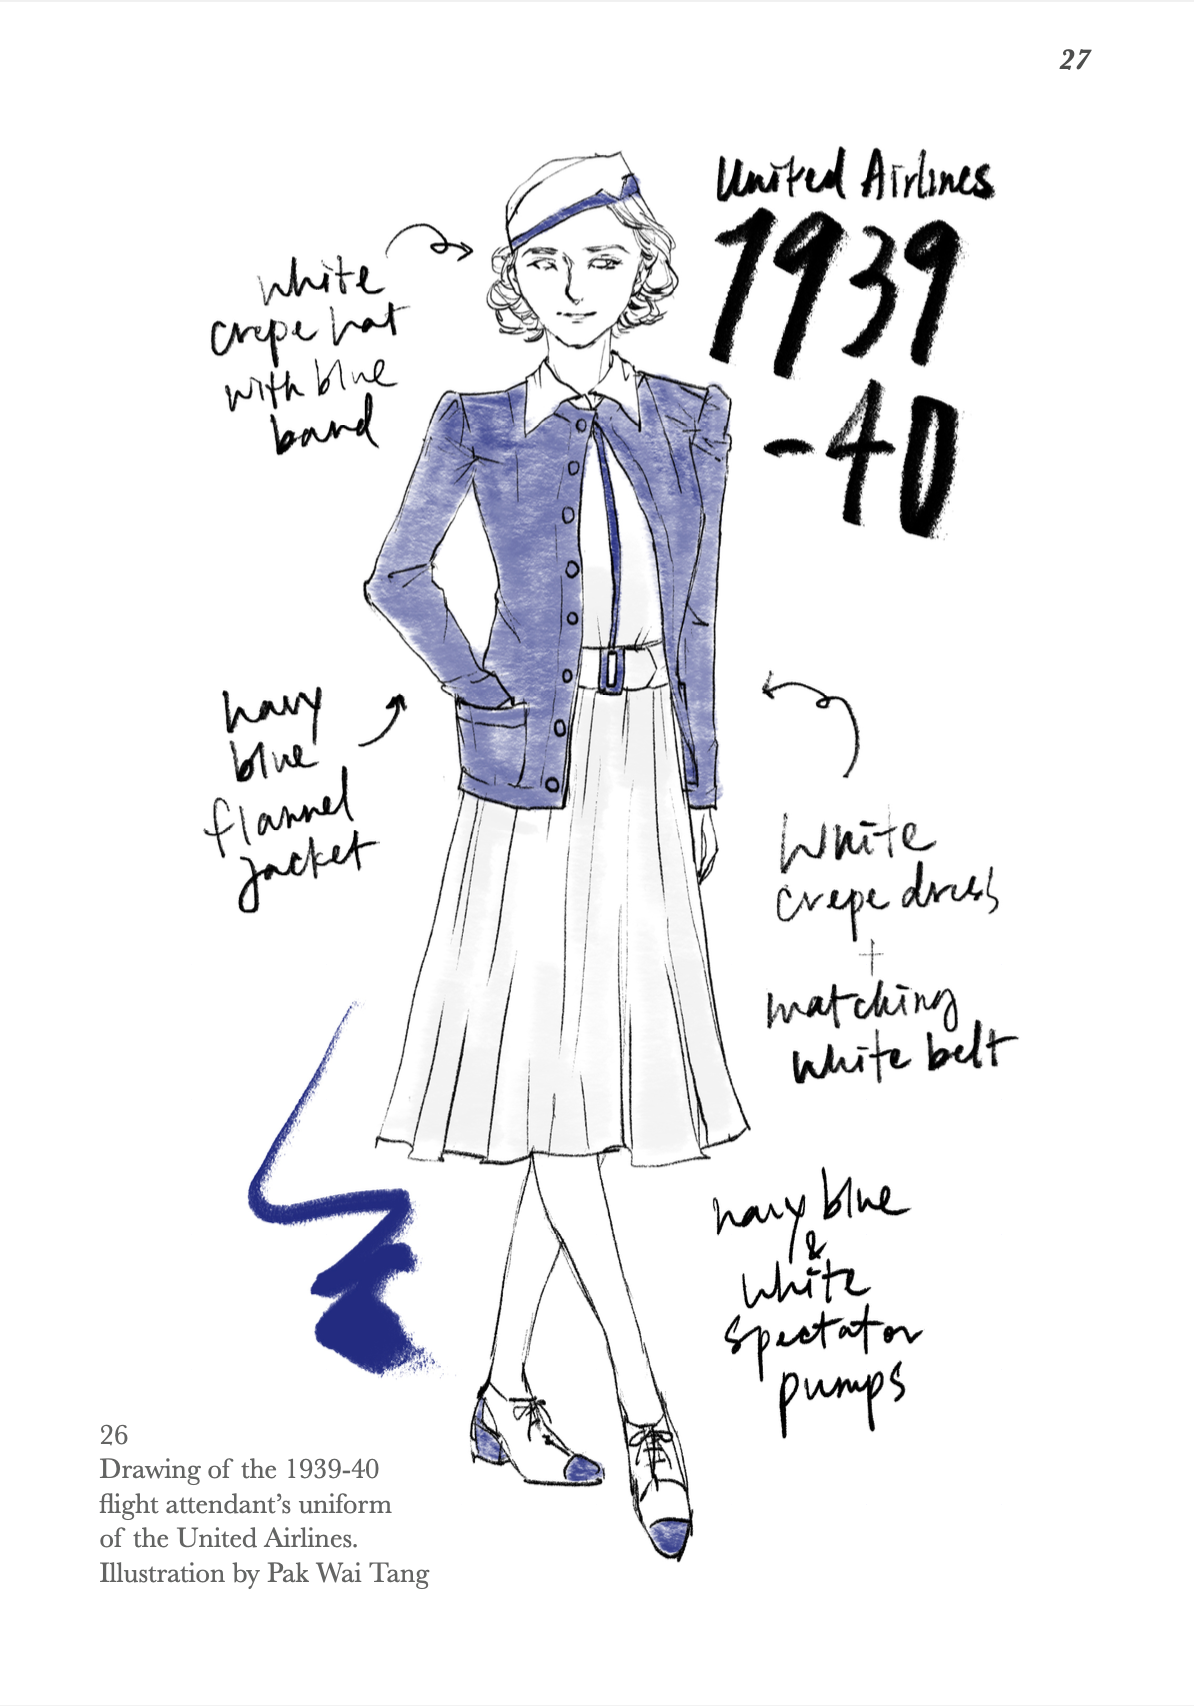 27
United Airlines
1939
-40
white
crepe hat
with blue
band
navy
blue
flannel
jacket
White
crepe dress
+
matching
white belt
navy blue
&
white
spectator
pumps
26
Drawing of the 1939-40
flight attendant’s uniform
of the United Airlines.
Illustration by Pak Wai Tang